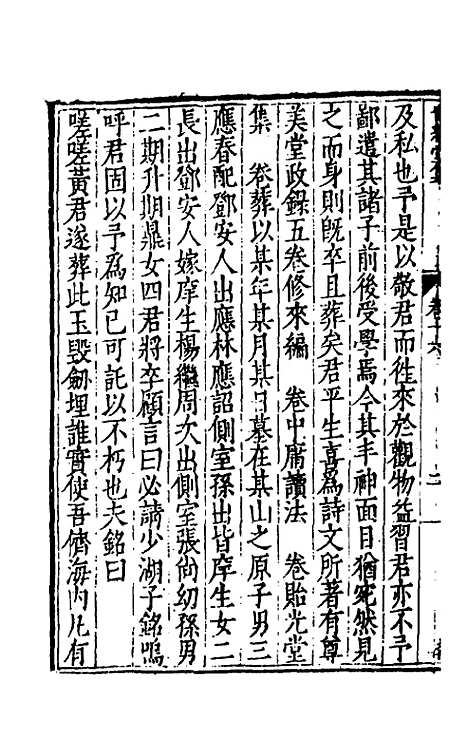 及私也予是以敬君而徃來於觀物益習君亦不予
鄙遣其諸子前後受學焉今其丰神面目猶宛然見
之而身則既卒且葬矣君平生喜爲詩文所著有尊
美堂政録五卷修來編　卷中庸讀法　卷貽光堂
集　卷葬以某年某月某日墓在某山之原子男三
應春配鄧安人出應林應詔側室孫出皆庠生女二
長出鄧安人嫁庠生楊繼周次出側室張尚幼孫男
二期升期鼎女四君將卒顧言曰必請少湖子銘嗚
呼君固以予爲知已可託以不朽也夫銘曰
嗟嗟黃君遂葬此玉毀劒埋誰實使吾儕海内凡有